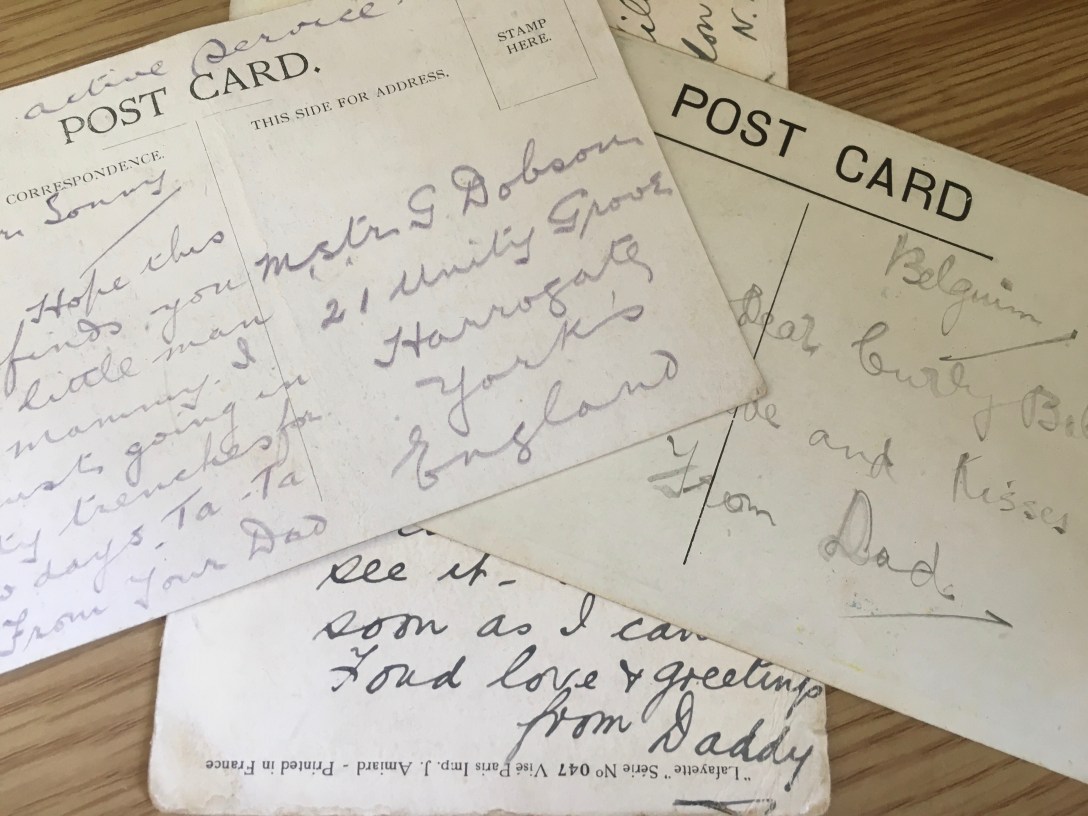 active Service.
POST CARD.
CORRESPONDENCE.
THIS SIDE FOR ADDRESS.
STAMP
HERE.
Sonny
Hope this
finds you
little man
mammy. I
going in
trenches for
days. Ta-Ta
From Your Dad
Mstr. G Dobson
21 Unity Grove
Harrogate
York's
England
POST CARD
Belguim
Dear Curly
and Kisses
From Dad.
see it-
soon as I can
Fond love & greetings
from Daddy
"Lafayette" Série No 047 Visé Paris Imp. J. Amiard - Printed in France
N.